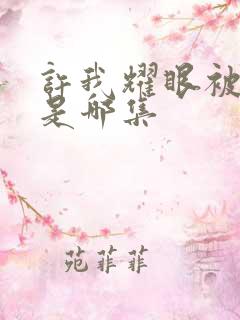 許我耀眼被
是哪集
苑菲菲